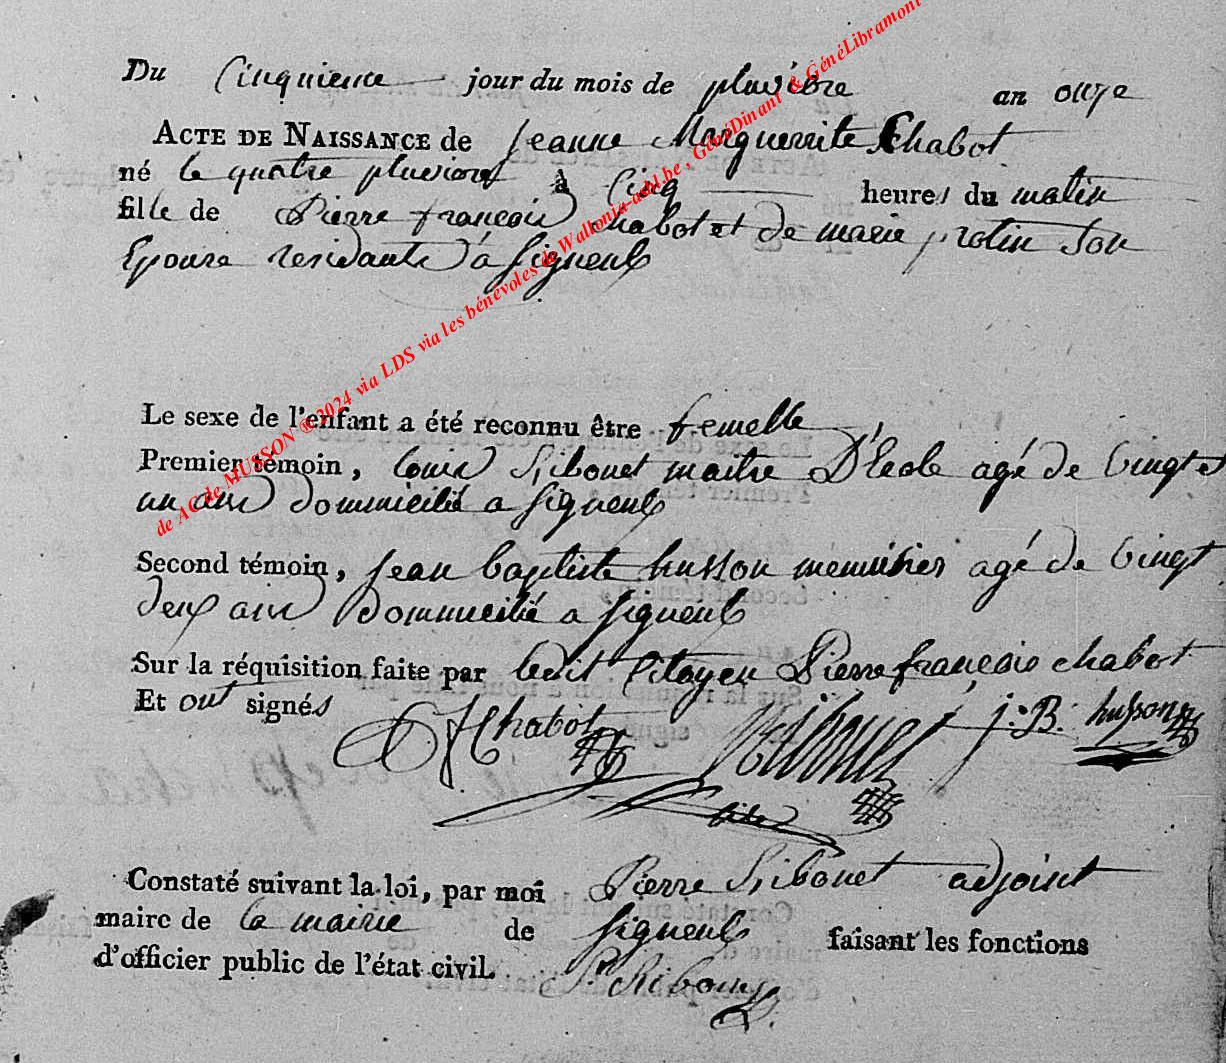 Du Cinquieme jour du mois de pluviôse an onze
ACTE DE NAISSANCE de Jeanne Marguerite Chabot
né le quatre pluviose à Cinq heures du matin
fille de Pierre françois Chabot et de marie protin son
Epouse residante à Signeulx
Le sexe de l'enfant a été reconnu être femelle
Premier témoin, louis Ribonet maitre D'école agé de vingt et
un ans domicilié a Signeulx
Second témoin, jean baptiste husson menuisier agé de vingt
deux ans domicilié a Signeulx
Sur la réquisition faite par ledit Citoyen Pierre françois chabot
Et ont signés
Chabot Ribonet j. B. husson
Constaté suivant la loi, par moi Pierre Ribonet adjoint
maire de la mairie de Signeulx faisant les fonctions
d'officier public de l'état civil.
de AC de MUSSON ® 2024 via LDS via les bénévoles de Wallonia-asbl.be, GénéDinant & GénéLibramont